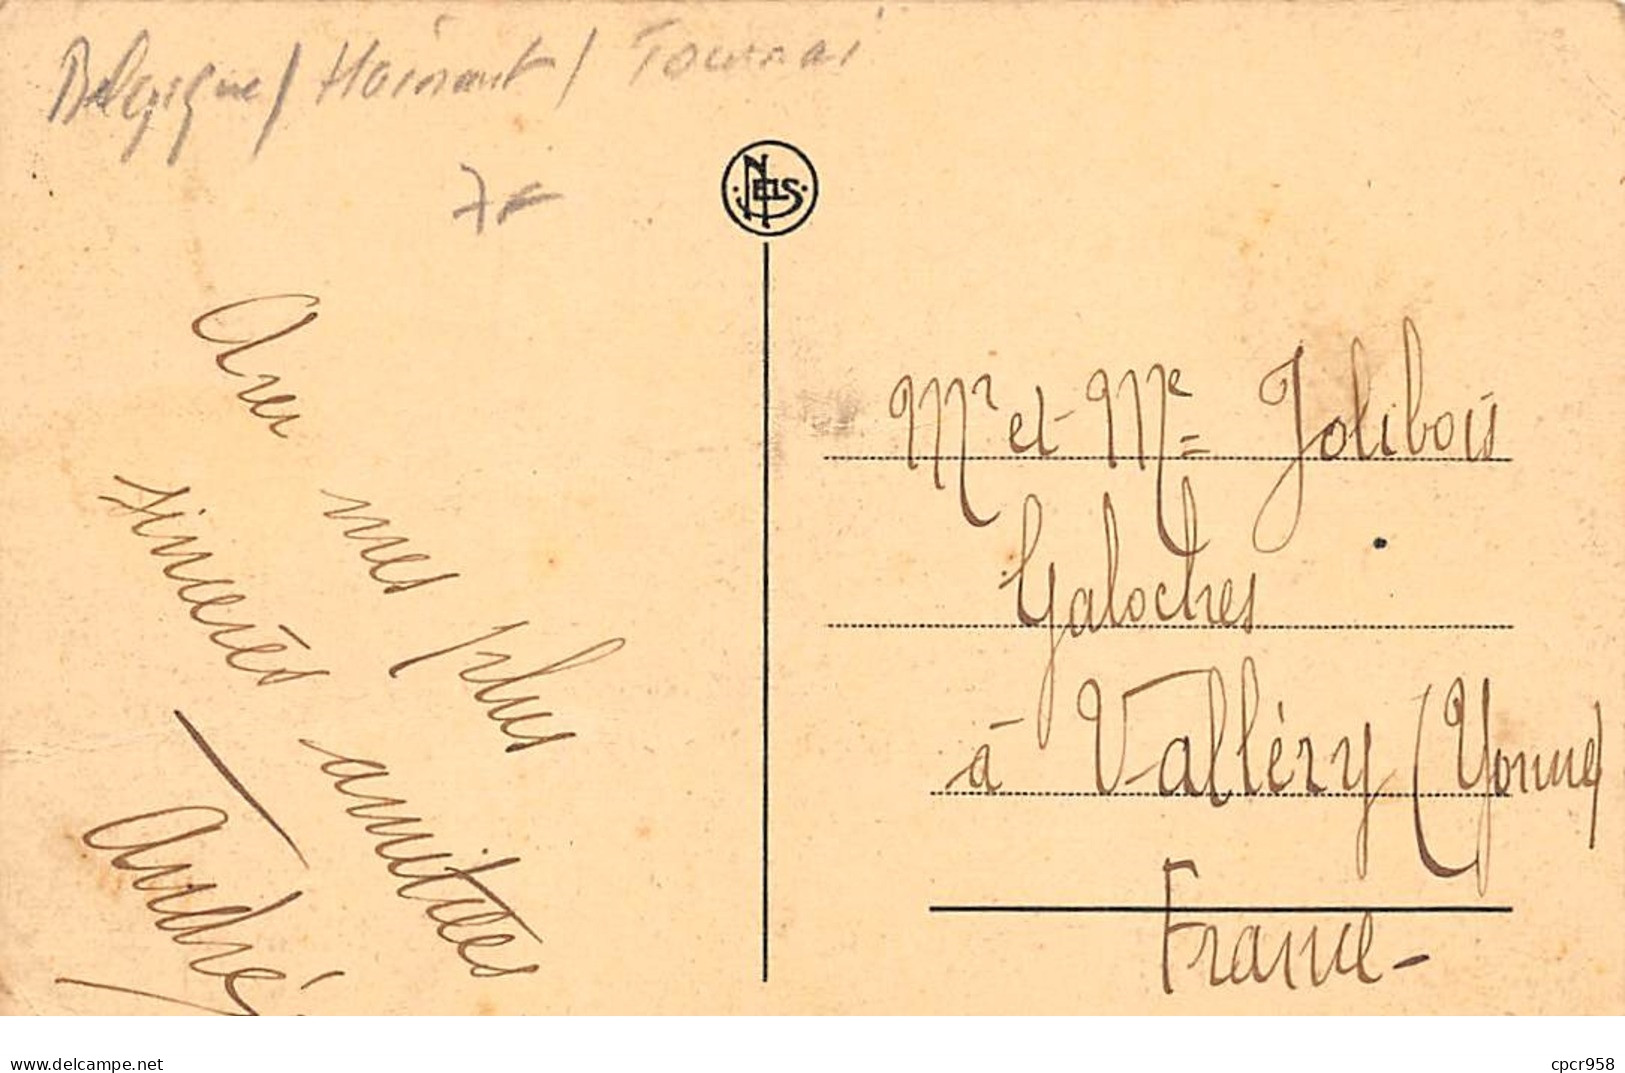 Belgique / Hainaut / Tournai
7F
NELS
Avec
mes plus
sincères amitiées
André
Mr et Me Jolibois
Galoches
à Valléry (Yonne)
France -
www.delcampe.net
cpcr958